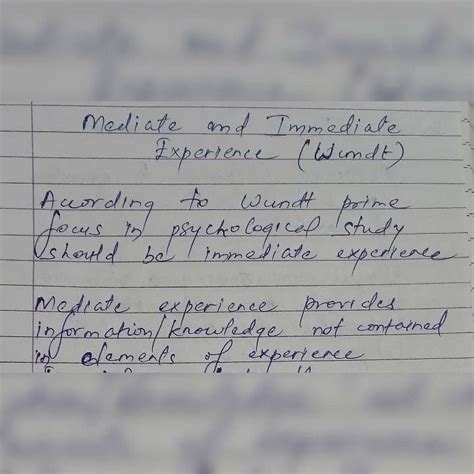 Mediate and Immediate
Experience (Wundt)
According to Wundt prime
focus in psychological study
should be immediate experience
Mediate experience provides
information/knowledge not contained
in elements of experience